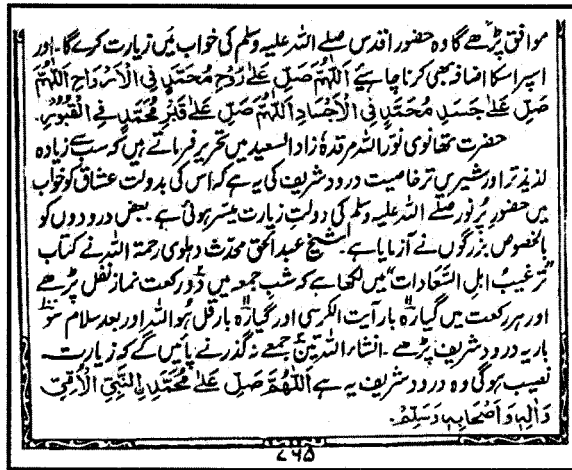 موافق پڑھے گا وہ حضور اقدس صلے اللہ علیہ وسلم کی خواب میں زیارت کرے گا۔ اور
اسپر اسکا اضافہ بھی کرنا چاہیئے اَللّٰهُمَّ صَلِّ عَلٰى رُوْحِ مُحَمَّدٍ فِي الْاَرْوَاحِ اَللّٰهُمَّ
صَلِّ عَلٰى جَسَدِ مُحَمَّدٍ فِي الْاَجْسَادِ اَللّٰهُمَّ صَلِّ عَلٰى قَبْرِ مُحَمَّدٍ فِي الْقُبُوْرِ۔
حضرت تھانوی نوّر اللہ مرقدہٗ زاد السعید میں تحریر فرماتے ہیں کہ سب سے زیادہ
لذیذ تر اور شیریں تر خاصیت درود شریف کی یہ ہے کہ اس کی بدولت عشاق کو خواب
میں حضورِ پُر نور صلے اللہ علیہ وسلم کی دولتِ زیارت میسر ہوئی ہے۔ بعض درودوں کو
بالخصوص بزرگوں نے آزمایا ہے۔ شیخ عبدالحق محدّث دہلوی رحمۃ اللہ نے کتاب
"ترغیبُ اہلِ السَّعَادات" میں لکھا ہے کہ شبِ جمعہ میں دو رکعت نماز نفل پڑھے
اور ہر رکعت میں گیارہ بار آیت الکرسی اور گیارہ بار قل ہُو اللہ اور بعد سلام سو
بار یہ درود شریف پڑھے۔ انشاء اللہ تین جمعے نہ گذرنے پائیں گے کہ زیارت
نصیب ہوگی وہ درود شریف یہ ہے اَللّٰهُمَّ صَلِّ عَلٰى مُحَمَّدِ ۣالنَّبِيِّ الْاُمِّيِّ
وَاٰلِهٖ وَاَصْحَابِهٖ وَسَلِّمْ۔
۷۶۵